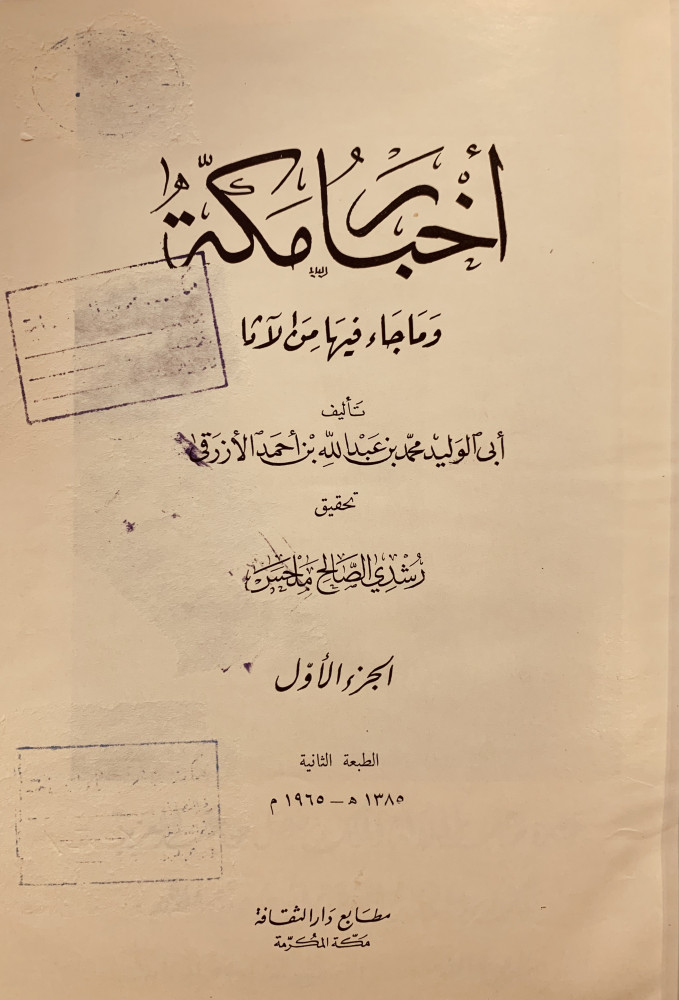 أخبار مكة
وما جاء فيها من الآثا
تأليف
أبي الوليد محمد بن عبد الله بن أحمد الأزرقي
تحقيق
رشدي الصالح ملحس
الجزء الأول
الطبعة الثانية
١٣٨٥ هـ — ١٩٦٥ م
مطابع دار الثقافة
مكة المكرمة